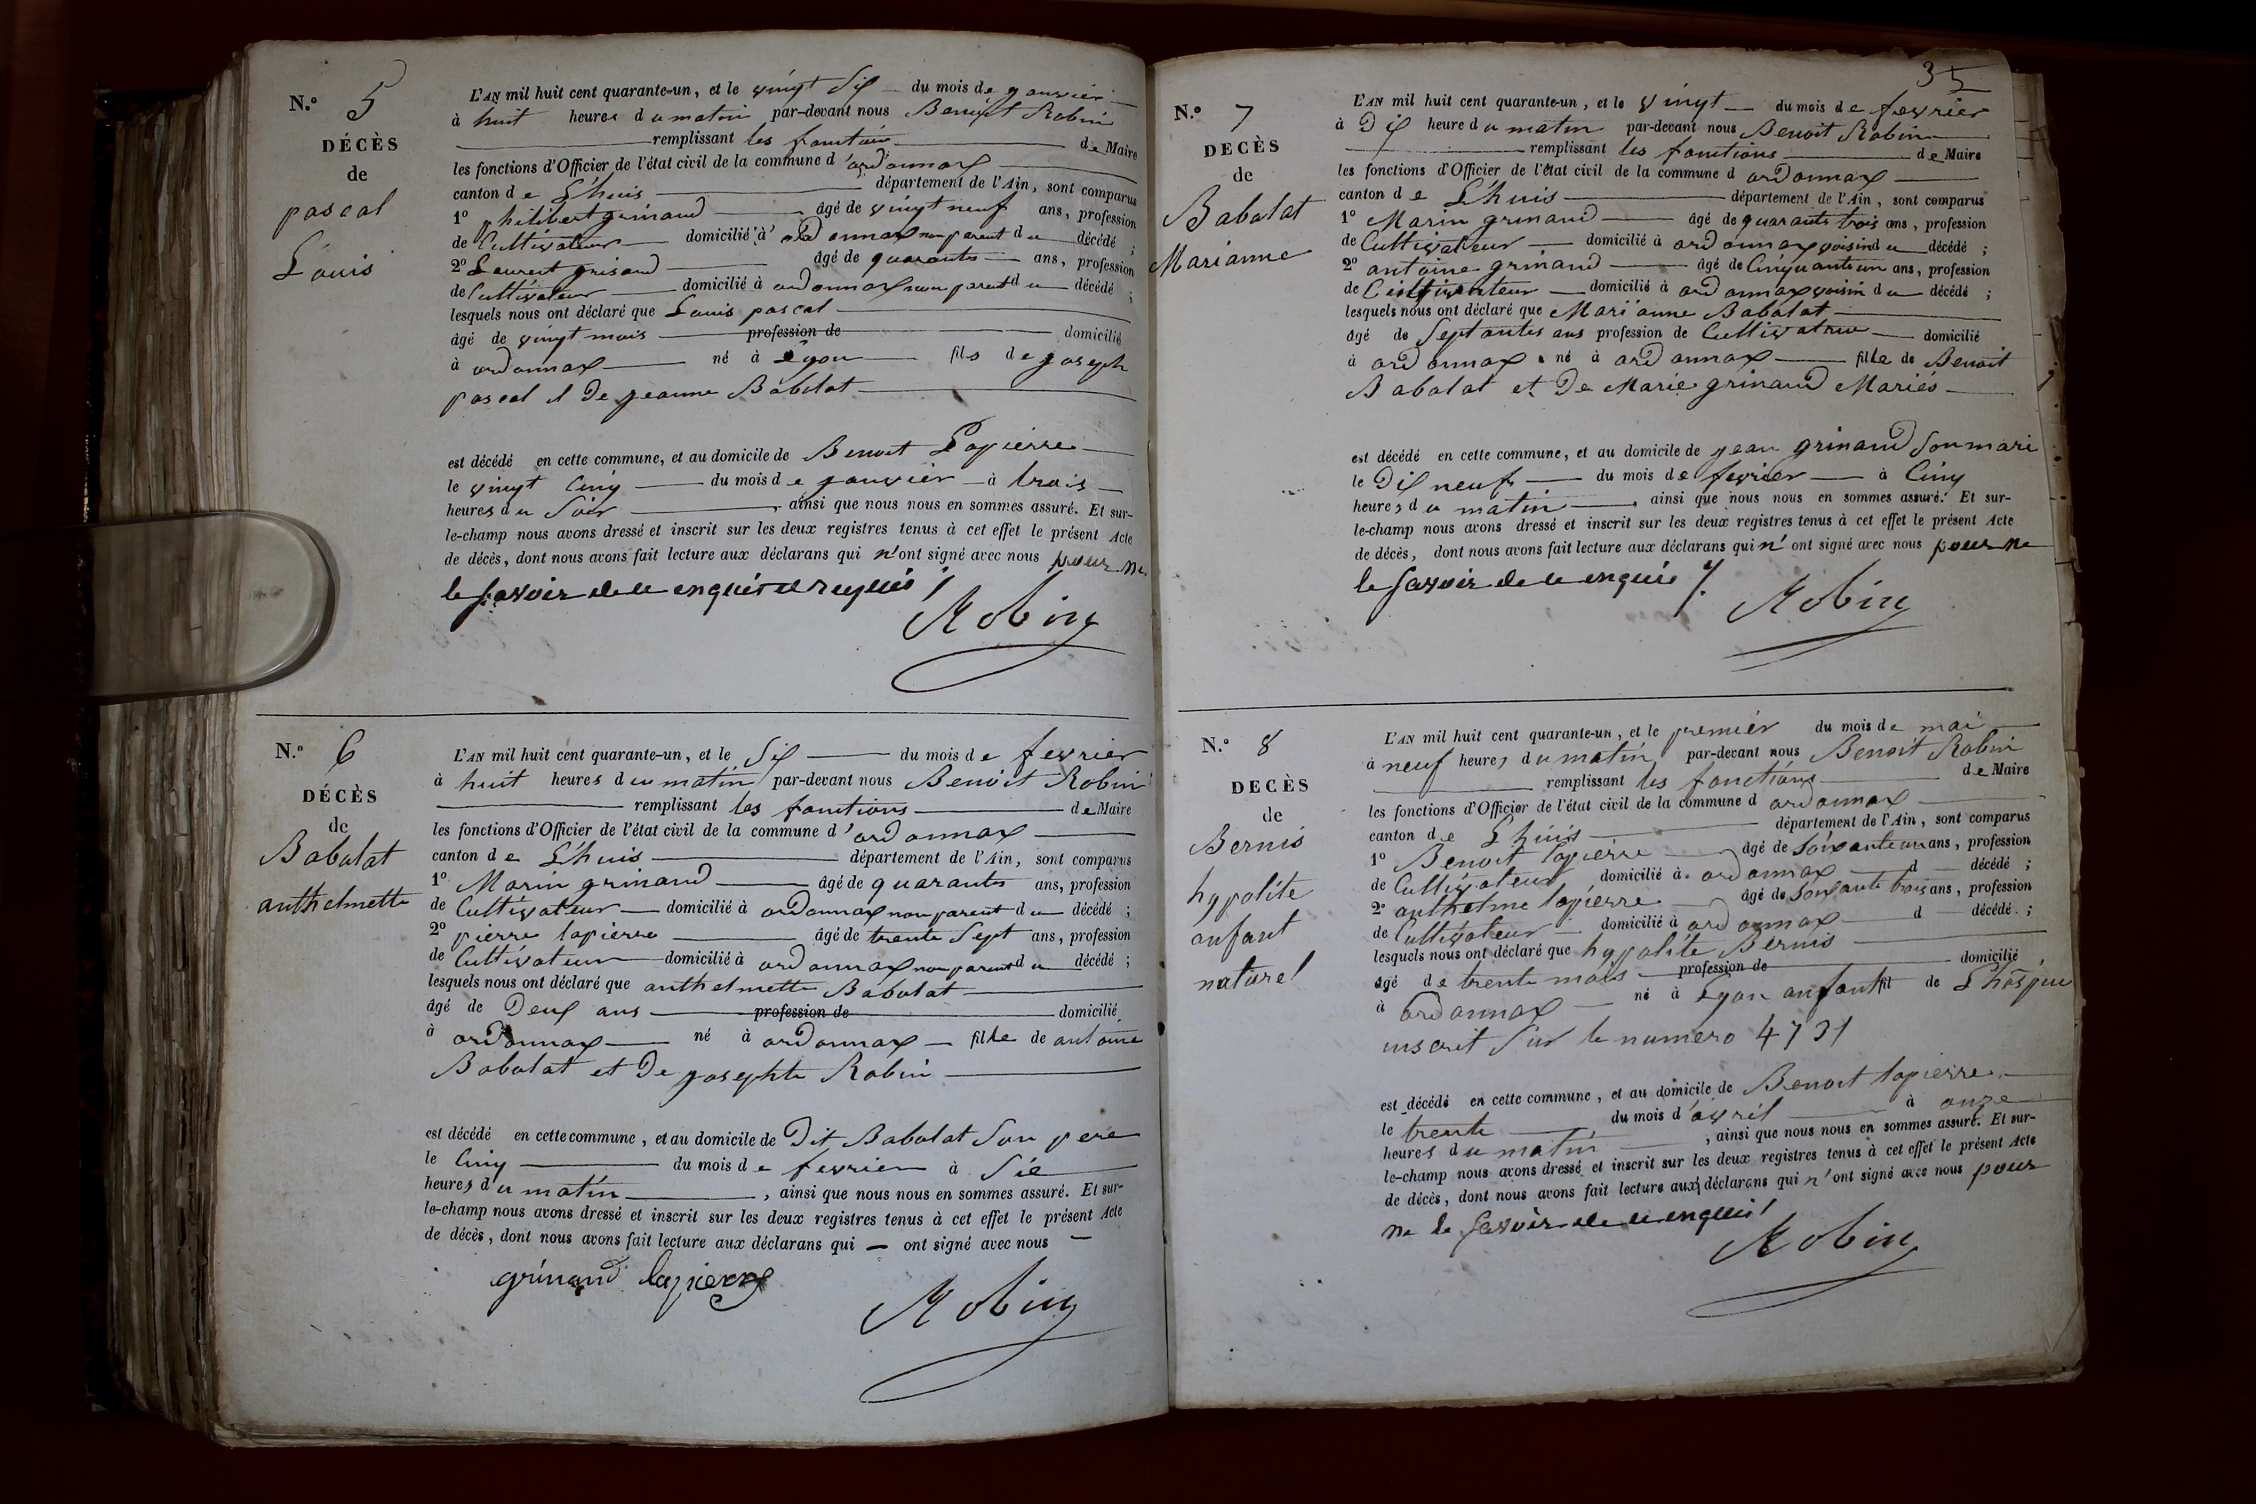 N.º 5
DÉCÈS
de
pascal
Louis
L'AN mil huit cent quarante-un, et le vingt Six du mois de janvier
à huit heures du matin par-devant nous Benoit Robin
remplissant les fonctions de Maire
les fonctions d'Officier de l'état civil de la commune d'ordonnax
canton de L'huis département de l'Ain, sont comparus
1º philibert grinand âgé de vingt neuf ans, profession
de Cultivateur domicilié à ordonnax non parent du décédé ;
2º Laurent grinand âgé de quarante ans, profession
de Cultivateur domicilié à ordonnax non parent du décédé ;
lesquels nous ont déclaré que Louis pascal
âgé de vingt mois profession de domicilié
à ordonnax né à Lyon fils de joseph
pascal et De jeanne Babolat
est décédé en cette commune, et au domicile de Benoit Lapierre
le vingt Cinq du mois de janvier à trois
heures du Soir , ainsi que nous nous en sommes assuré. Et sur-
le-champ nous avons dressé et inscrit sur les deux registres tenus à cet effet le présent Acte
de décès, dont nous avons fait lecture aux déclarans qui n'ont signé avec nous pour ne
le Savoir de ce enquis et requis
Robin
N.º 6
DÉCÈS
de
Babolat
anthelmette
L'AN mil huit cent quarante-un, et le Six du mois de fevrier
à huit heures du matin par-devant nous Benoit Robin
remplissant les fonctions de Maire
les fonctions d'Officier de l'état civil de la commune d'ordonnax
canton de L'huis département de l'Ain, sont comparus
1º Marin grinand âgé de quarante ans, profession
de Cultivateur domicilié à ordonnax non parent du décédé ;
2º pierre lapierre âgé de trente Sept ans, profession
de Cultivateur domicilié à ordonnax non parent du décédé ;
lesquels nous ont déclaré que anthelmette Babolat
âgé de Deux ans profession de domicilié
à ordonnax né à ordonnax fille de antoine
Babolat et De josephte Robin
est décédé en cette commune, et au domicile de Dit Babolat Son pere
le Cinq du mois de fevrier à Six
heures du matin , ainsi que nous nous en sommes assuré. Et sur-
le-champ nous avons dressé et inscrit sur les deux registres tenus à cet effet le présent Acte
de décès, dont nous avons fait lecture aux déclarans qui ont signé avec nous
grinand lapierre
Robin
35
N.º 7
DECÈS
de
Babolat
Marianne
L'AN mil huit cent quarante-un, et le vingt du mois de fevrier
à Dix heure du matin par-devant nous Benoit Robin
remplissant les fonctions de Maire
les fonctions d'Officier de l'état civil de la commune d ordonnax
canton de L'huis département de l'Ain, sont comparus
1º Marin grinand âgé de quarante trois ans, profession
de Cultivateur domicilié à ordonnax voisin du décédé ;
2º antoine grinand âgé de Cinquante un ans, profession
de Cultivateur domicilié à ordonnax voisin du décédé ;
lesquels nous ont déclaré que Marianne Babolat
âgé de Septantes ans profession de Cultivatrice domicilié
à ordonnax né à ordonnax fille de Benoit
Babolat et De Marie grinand Mariés
est décédé en cette commune, et au domicile de jean grinand Son mari
le Dix neuf du mois de fevrier à Cinq
heures du matin , ainsi que nous nous en sommes assuré. Et sur-
le-champ nous avons dressé et inscrit sur les deux registres tenus à cet effet le présent Acte
de décès, dont nous avons fait lecture aux déclarans qui n'ont signé avec nous pour ne
le Savoir de ce enquis
Robin
N.º 8
DECÈS
de
Bernis
hypolite
enfant
naturel
L'AN mil huit cent quarante-un, et le premier du mois de mai
à neuf heures du matin par-devant nous Benoit Robin
remplissant les fonctions de Maire
les fonctions d'Officier de l'état civil de la commune d ordonnax
canton de L'huis département de l'Ain, sont comparus
1º Benoit lapierre âgé de Soixante un ans, profession
de Cultivateur domicilié à ordonnax d décédé ;
2º anthelme lapierre âgé de Soixante trois ans, profession
de Cultivateur domicilié à ordonnax d décédé ;
lesquels nous ont déclaré que hypolite Bernis
âgé de trente mois profession de domicilié
à ordonnax né à Lyon enfant fil de L'hospice
inscrit Sur le numero 4731
est décédé en cette commune, et au domicile de Benoit lapierre
le trente du mois d'avril à onze
heures du matin , ainsi que nous nous en sommes assuré. Et sur-
le-champ nous avons dressé et inscrit sur les deux registres tenus à cet effet le présent Acte
de décès, dont nous avons fait lecture aux déclarans qui n'ont signé avec nous pour
ne le Savoir de ce enquis
Robin